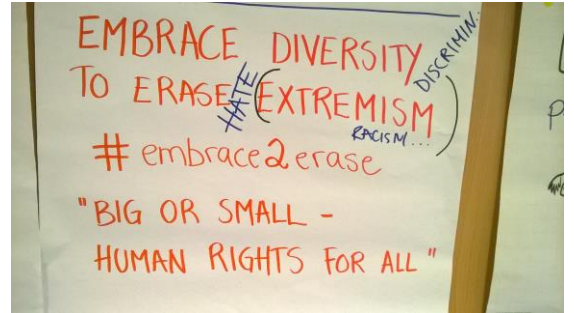 EMBRACE DIVERSITY
TO ERASE HATE (EXTREMISM)
DISCRIMIN...
RACISM...
# embrace2erase
"BIG OR SMALL -
HUMAN RIGHTS FOR ALL"